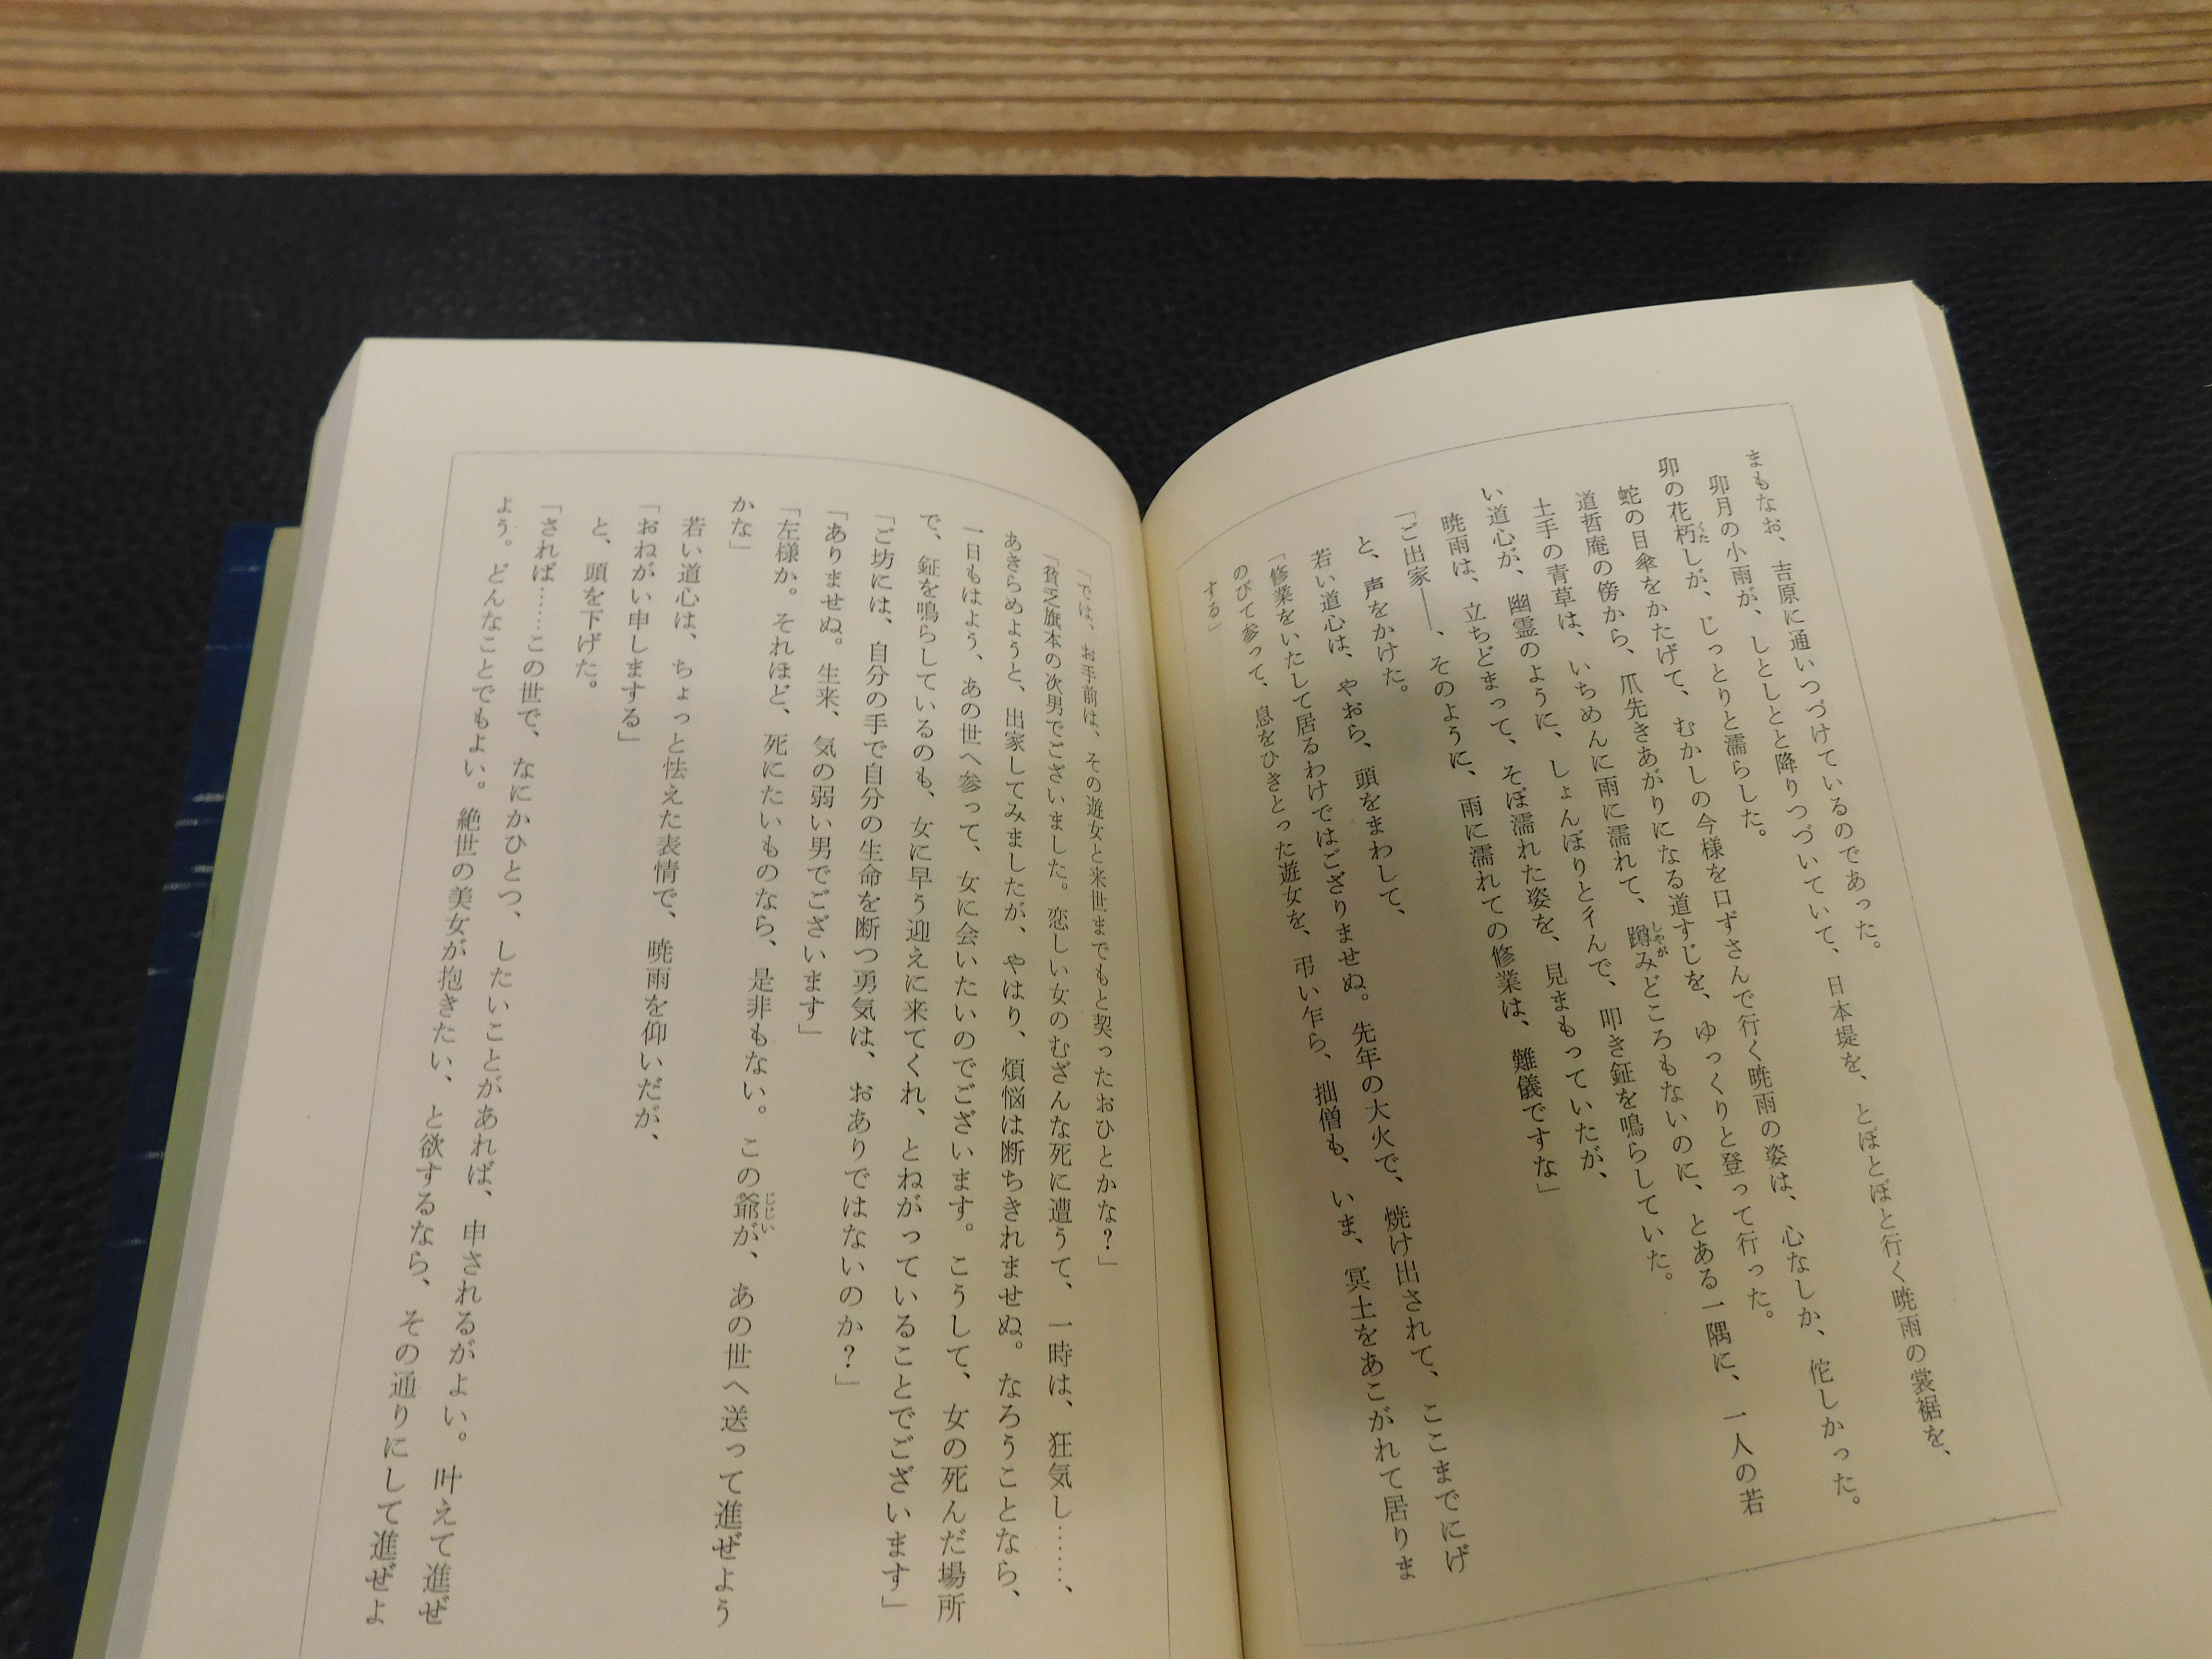 まもなお、吉原に通いつづけているのであった。
卯月の小雨が、しとしとと降りつづいていて、日本堤を、とぼとぼと行く暁雨の裳裾を、じっとりと濡らした。
卯の花朽しが、むかしの今様を口ずさんで行く暁雨の姿は、心なしか、侘しかった。
蛇の目傘をかたげて、爪先きあがりになる道すじを、ゆっくりと登って行った。
道哲庵の傍から、蹲みどころもないのに、とある一隅に、一人の若
土手の青草は、いちめんに雨に濡れて、
い道心が、幽霊のように、しょんぼりと彳んで、叩き鉦を鳴らしていた。
暁雨は、立ちどまって、そぼ濡れた姿を、見まもっていたが、
「ご出家――、そのように、雨に濡れての修業は、難儀ですな」
と、声をかけた。
若い道心は、やおら、頭をまわして、
「修業をいたして居るわけではござりませぬ。先年の大火で、焼け出されて、ここまでにげ
のびて参って、息をひきとった遊女を、弔い乍ら、拙僧も、いま、冥土をあこがれて居りま
する」
「では、お手前は、その遊女と来世までもと契ったおひとかな？」
「貧乏旗本の次男でございました。恋しい女のむざんな死に遭うて、一時は、狂気し……、
あきらめようと、出家してみましたが、やはり、煩悩は断ちきれませぬ。なろうことなら、
一日もはよう、あの世へ参って、女に会いたいのでございます。こうして、女の死んだ場所
で、鉦を鳴らしているのも、女に早う迎えに来てくれ、とねがっていることでございます」
「ご坊には、自分の手で自分の生命を断つ勇気は、おありではないのか？」
「ありませぬ。生来、気の弱い男でございます」
「左様か。それほど、死にたいものなら、是非もない。この爺が、あの世へ送って進ぜよう
かな」
若い道心は、ちょっと怯えた表情で、暁雨を仰いだが、
「おねがい申しまする」
と、頭を下げた。
「されば……この世で、なにかひとつ、したいことがあれば、申されるがよい。叶えて進ぜ
よう。どんなことでもよい。絶世の美女が抱きたい、と欲するなら、その通りにして進ぜよ